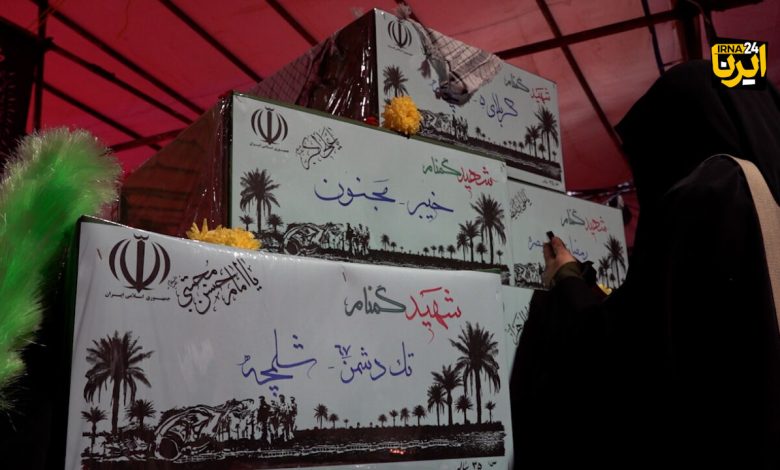 IRNA24
ایرنا
شهید گمنام
کربلای ۵
جمهوری اسلامی ایران
شهید گمنام
خیبر - مجنون
شهید گمنام
جمهوری اسلامی ایران
یا امام حسن مجتبی
شهید گمنام
تک دشمن ۶۷ - شلمچه